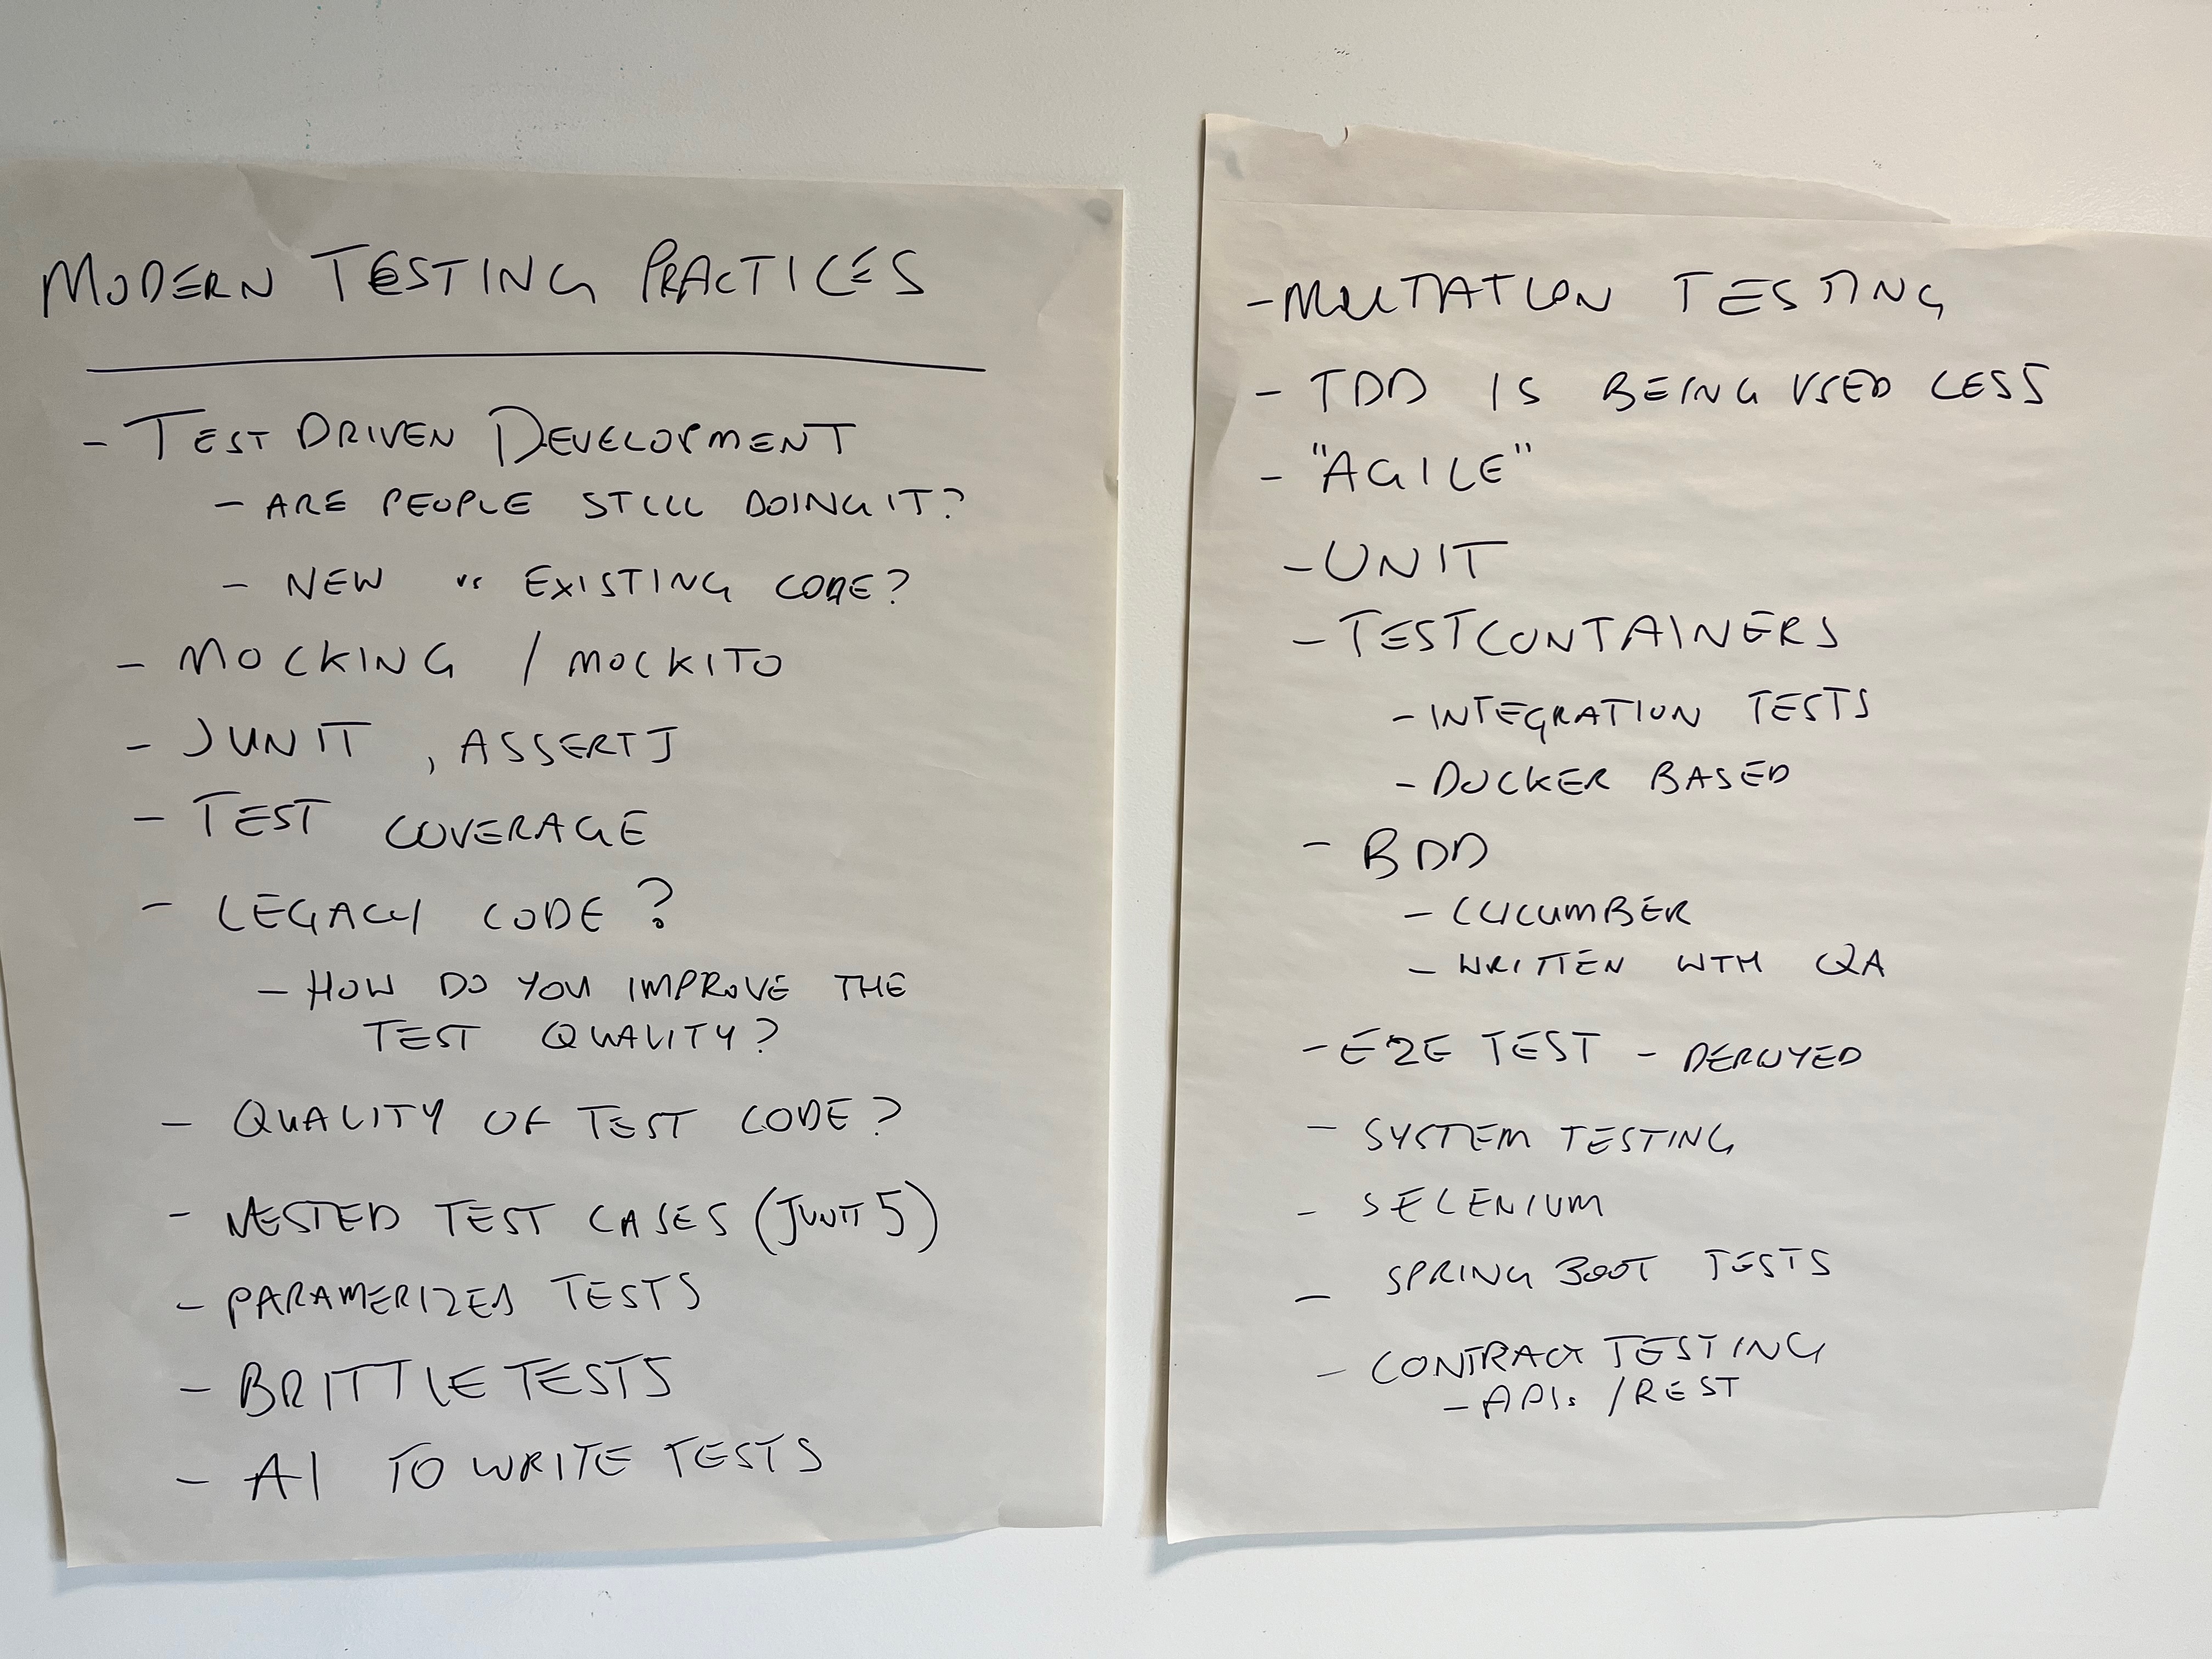 MODERN TESTING PRACTICES
- TEST DRIVEN DEVELOPMENT
- ARE PEOPLE STILL DOING IT?
- NEW vs EXISTING CODE?
- MOCKING / MOCKITO
- JUNIT, ASSERTJ
- TEST COVERAGE
- LEGACY CODE?
- HOW DO YOU IMPROVE THE
TEST QUALITY?
- QUALITY OF TEST CODE?
- NESTED TEST CASES (JUNIT 5)
- PARAMERIZED TESTS
- BRITTLE TESTS
- AI TO WRITE TESTS
- MUTATION TESTING
- TDD IS BEING USED LESS
- "AGILE"
- UNIT
- TESTCONTAINERS
- INTEGRATION TESTS
- DOCKER BASED
- BDD
- CUCUMBER
- WRITTEN WITH QA
- E2E TEST - DEPLOYED
- SYSTEM TESTING
- SELENIUM
- SPRING BOOT TESTS
- CONTRACT TESTING
- APIs / REST